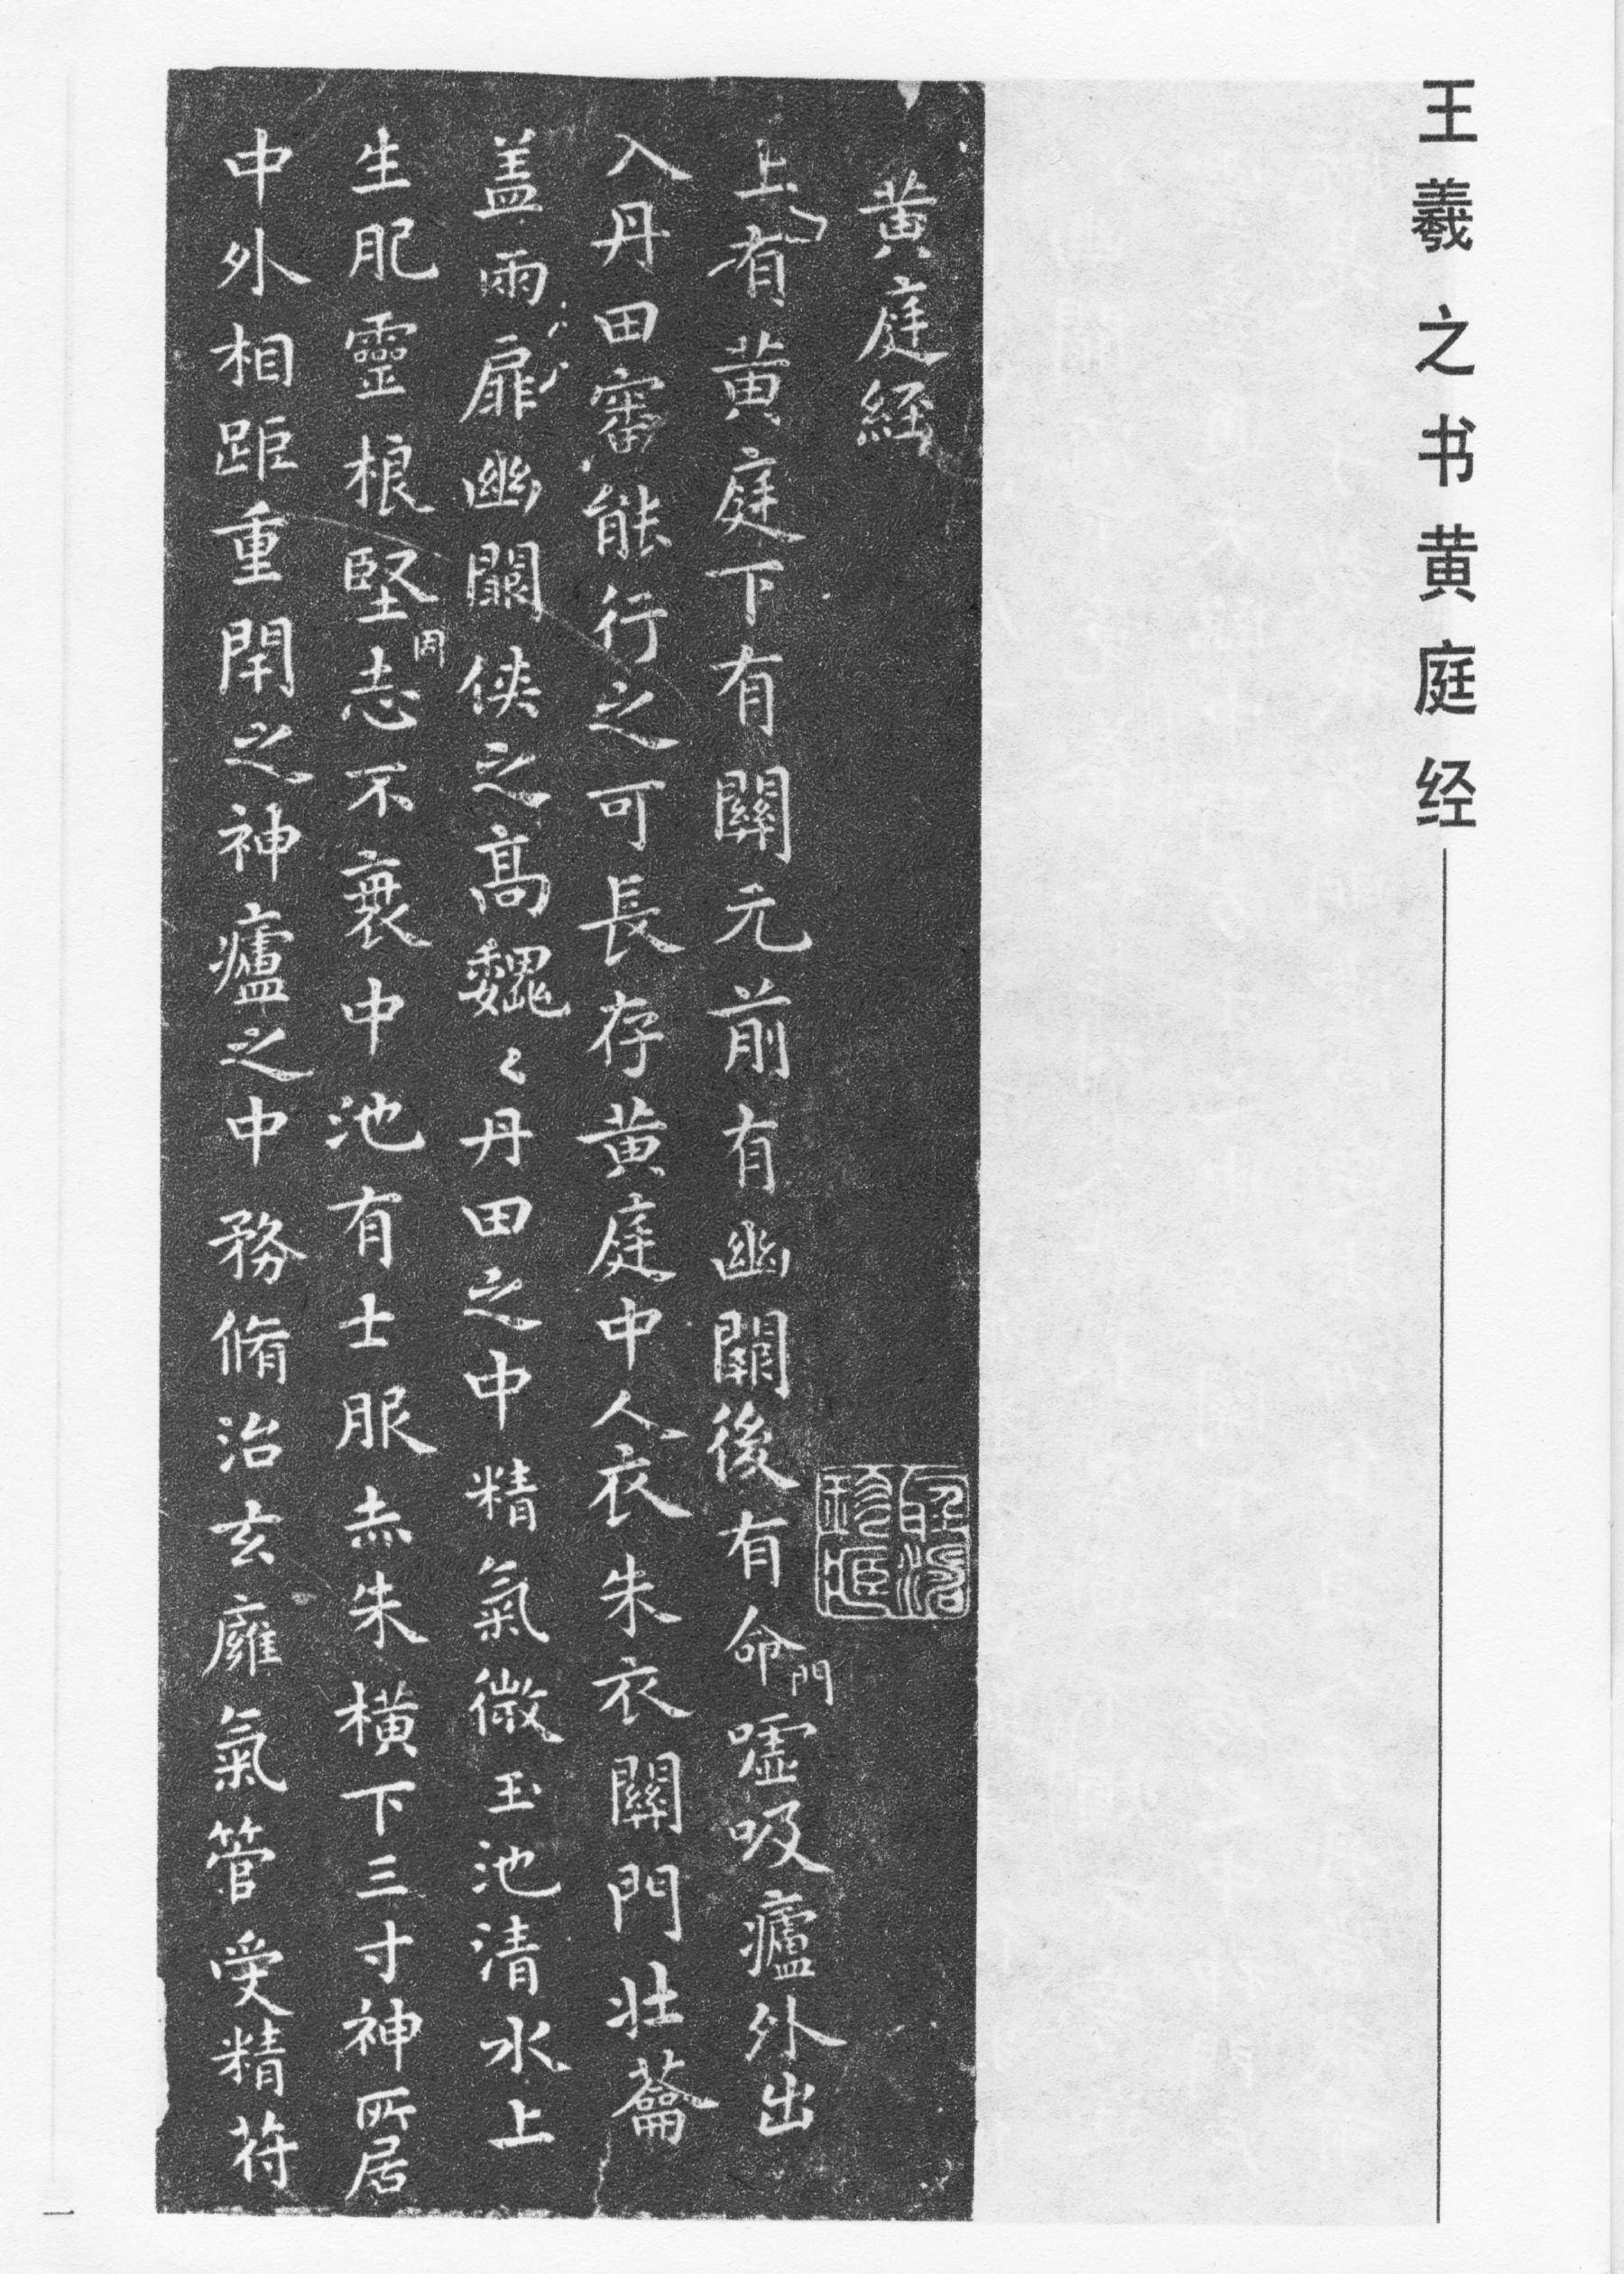 王羲之书黄庭经
黄庭經
上有黄庭下有關元前有幽闕後有命門嘘吸廬外出
入丹田審能行之可長存黄庭中人衣朱衣關門壮蘥
盖兩扉幽闕俠之高魏〻丹田之中精氣微玉池清水上
生肥靈根堅固志不衰中池有士服赤朱横下三寸神所居
中外相距重閇之神廬之中務脩治玄廱氣管受精符
一